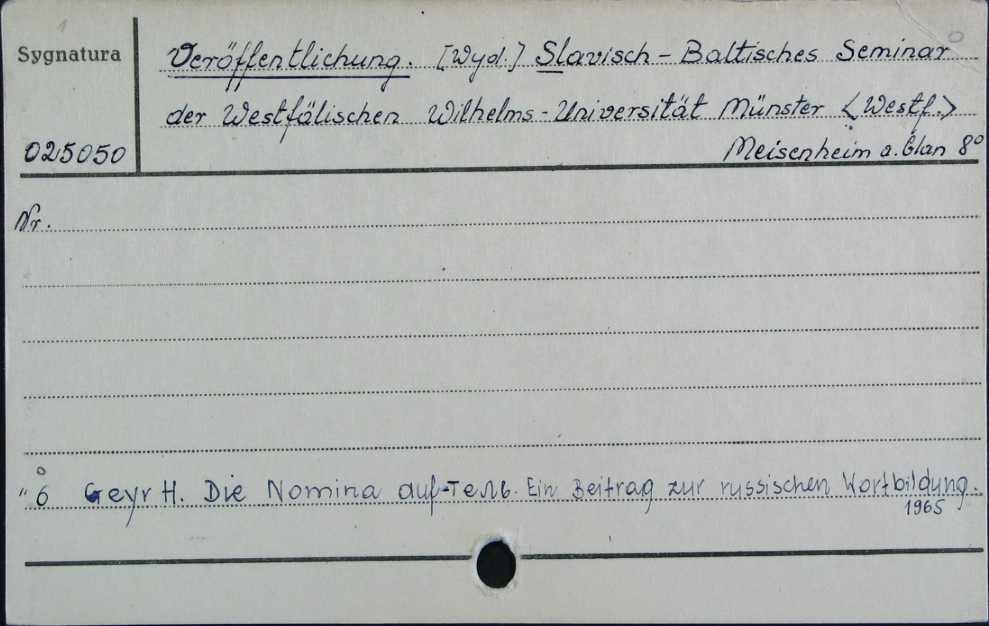 Sygnatura
Veröffentlichung. [Wyd.] Slavisch-Baltisches Seminar
der Westfälischen Wilhelms-Universität Münster <Westf.>
025050
Meisenheim a. Glan 8°
Nr.
" 6 Geyr H. Die Nomina auf -тель. Ein Beitrag zur russischen Wortbildung.
1965